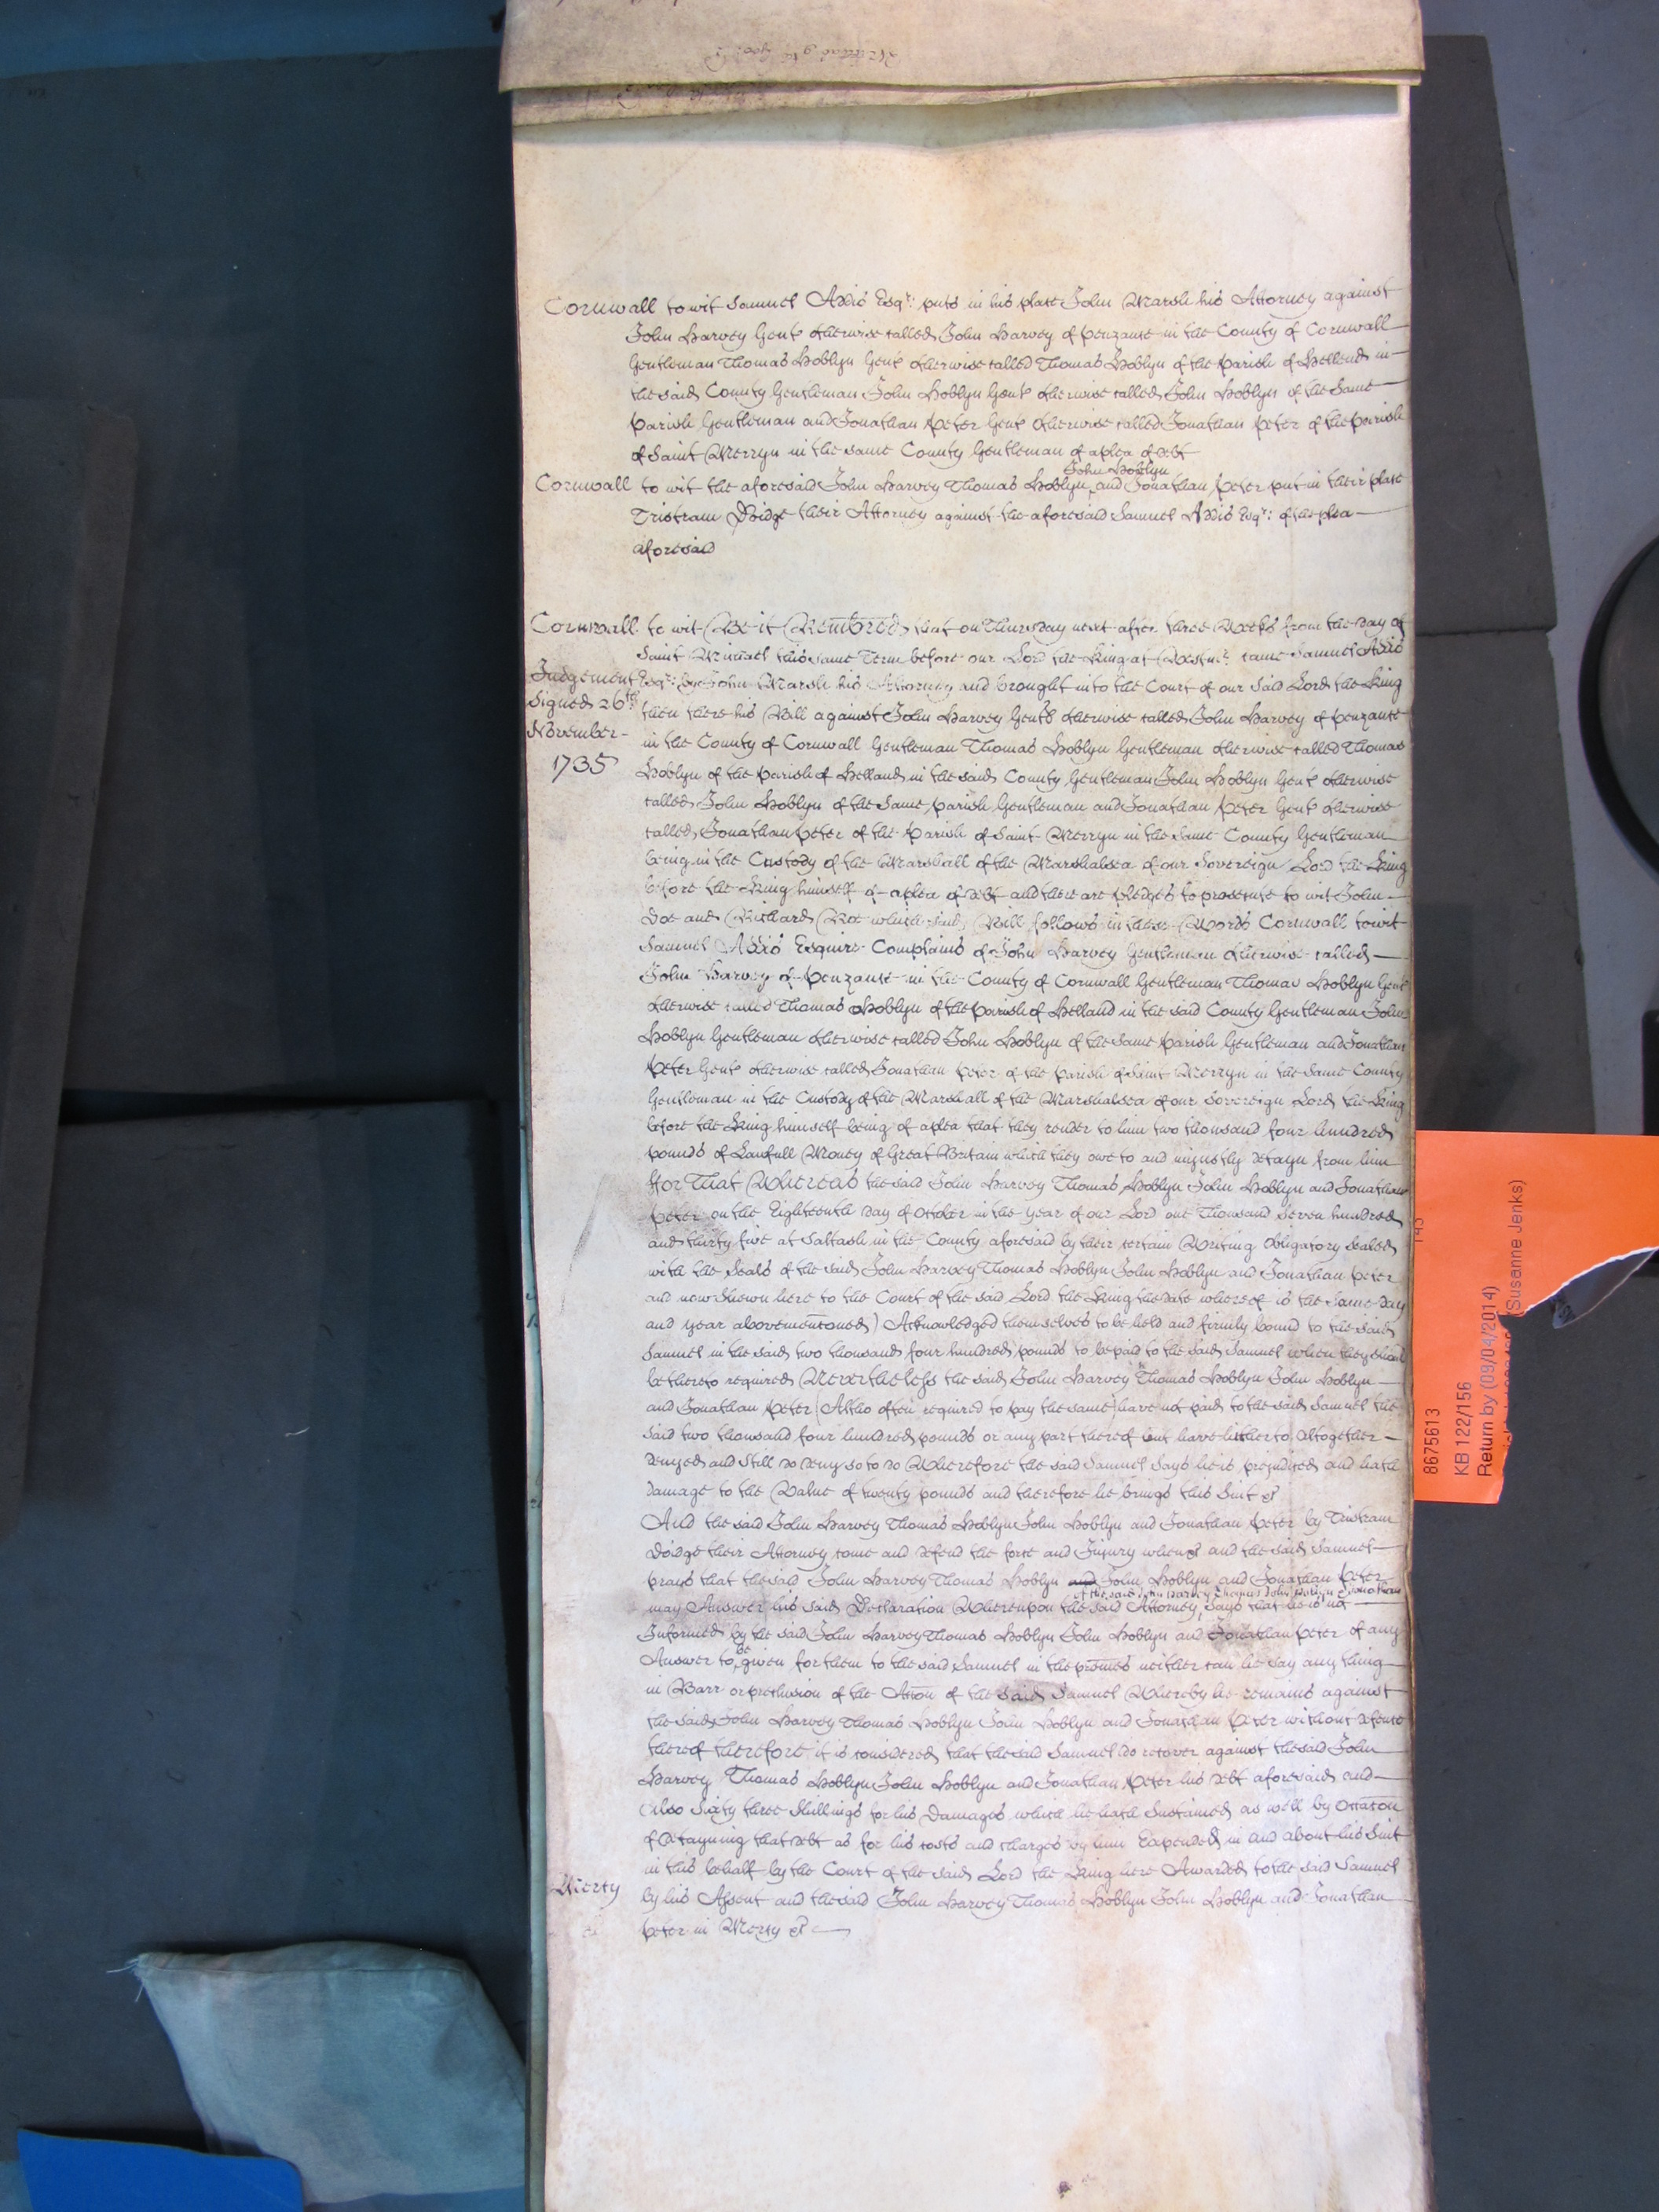 Cornwall to wit Samuel Addis Esqr: puts in his place John Marsh his Attorney against
John Harvey Gent otherwise called John Harvey of Penzance in the County of Cornwall
Gentleman Thomas Hoblyn Gent otherwise called Thomas Hoblyn of the Parish of Helland in
the said County Gentleman John Hoblyn Gent otherwise called John Hoblyn of the Same
Parish Gentleman and Jonathan Peter Gent otherwise called Jonathan Peter of the parish
of Saint Merryn in the same County Gentleman of a plea of debt
John Hoblyn
Cornwall to wit the aforesaid John Harvey Thomas Hoblyn and Jonathan Peter put in their place
Tristram Doidge their Attorney against the aforesaid Samuel Addis Esqr: of the plea
aforesaid
Cornwall to wit Be it Remembred that on Thursday next after three Weeks from the day of
Saint Michael this same Term before our Lord the King at Westmr. came Samuel Addis
Judgement
Signed 26th
November
1735
Esqr: by John Marsh his Attorney and brought into the Court of our said Lord the King
then there his Bill against John Harvey Gent otherwise called John Harvey of penzance
in the County of Cornwall Gentleman Thomas Hoblyn Gentleman otherwise called Thomas
Hoblyn of the Parish of Helland in the said County Gentleman John Hoblyn Gent otherwise
called John Hoblyn of the Same parish Gentleman and Jonathan Peter Gent otherwise
called Jonathan Peter of the Parish of Saint Merryn in the Same County Gentleman
being in the Custody of the Marshall of the Marshalsea of our Sovereign Lord the King
before the King himself of a plea of debt and there are pledges to prosecute to wit John
Doe and Richard Roe which said Bill follows in these Words Cornwall to wit
Samuel Addis Esquire Complains of John Harvey Gentleman otherwise called
John Harvey of Penzance in the County of Cornwall Gentleman Thomas Hoblyn Gent
otherwise called Thomas Hoblyn of the Parish of Helland in the said County Gentleman John
Hoblyn Gentleman otherwise called John Hoblyn of the Same Parish Gentleman and Jonathan
Peter Gent otherwise called Jonathan Peter of the Parish of Saint Merryn in the Same County
Gentleman in the Custody of the Marshall of the Marshalsea of our Sovereign Lord the King
before the King himself being of a plea that they render to him two thousand four hundred
pounds of Lawfull Money of Great Britain which they owe to and unjustly detayn from him
ffor That Whereas the said John Harvey Thomas Hoblyn John Hoblyn and Jonathan
Peter on the Eighteenth day of October in the year of our Lord one Thousand Seven hundred
and thirty five at Saltash in the County aforesaid by their certain Writing Obligatory Sealed
with the Seals of the said John Harvey Thomas Hoblyn John Hoblyn and Jonathan Peter
and now Shewn here to the Court of the said Lord the King the date whereof is the Same day
and year abovementoned) Acknowledged themselves to be held and firmly bound to the said
Samuel in the said two thousand four hundred pounds to be paid to the said Samuel when they should
be thereto required Nevertheless the said John Harvey Thomas Hoblyn John Hoblyn
and Jonathan Peter (Altho often required to pay the same) have not paid to the said Samuel the
said two thousand four hundred pounds or any part thereof but have hitherto altogether
denyed and Still do deny so to do Wherefore the said Samuel Says he is prejudiced and hath
damage to the Value of twenty pounds and therefore he brings this Suit &c
And the said John Harvey Thomas Hoblyn John Hoblyn and Jonathan Peter by Tristram
Doidge their Attorney come and defend the force and Injury when &c and the said Samuel
prays that the said John Harvey Thomas Hoblyn and John Hoblyn and Jonathan Peter
of the said John Harvey Thomas John Hoblyn & Jonathan
may Answer his said Declaration Whereupon the said Attorney Says that he is not
Informed by the said John Harvey Thomas Hoblyn John Hoblyn and Jonathan Peter of any
be
Answer to given for them to the said Samuel in the premes neither can he say any thing
in Barr or preclusion of the Acton of the said Samuel Whereby he remains against
the said John Harvey Thomas Hoblyn John Hoblyn and Jonathan Peter without defence
thereof therefore it is considered that the said Samuel do recover against the said John
Harvey Thomas Hoblyn John Hoblyn and Jonathan Peter his debt aforesaid and
Also Sixty three Shillings for his Damages which he hath Sustained as well by Occacon
of detayning that debt as for his costs and charges by him Expended in and about his Suit
in this behalf by the Court of the said Lord the King here Awarded to the said Samuel
Mercy
by his Assent and the said John Harvey Thomas Hoblyn John Hoblyn and Jonathan
Peter in Mercy &c
8675613
KB 122/156
Return by (09/04/2014)
(Susanne Jenks)